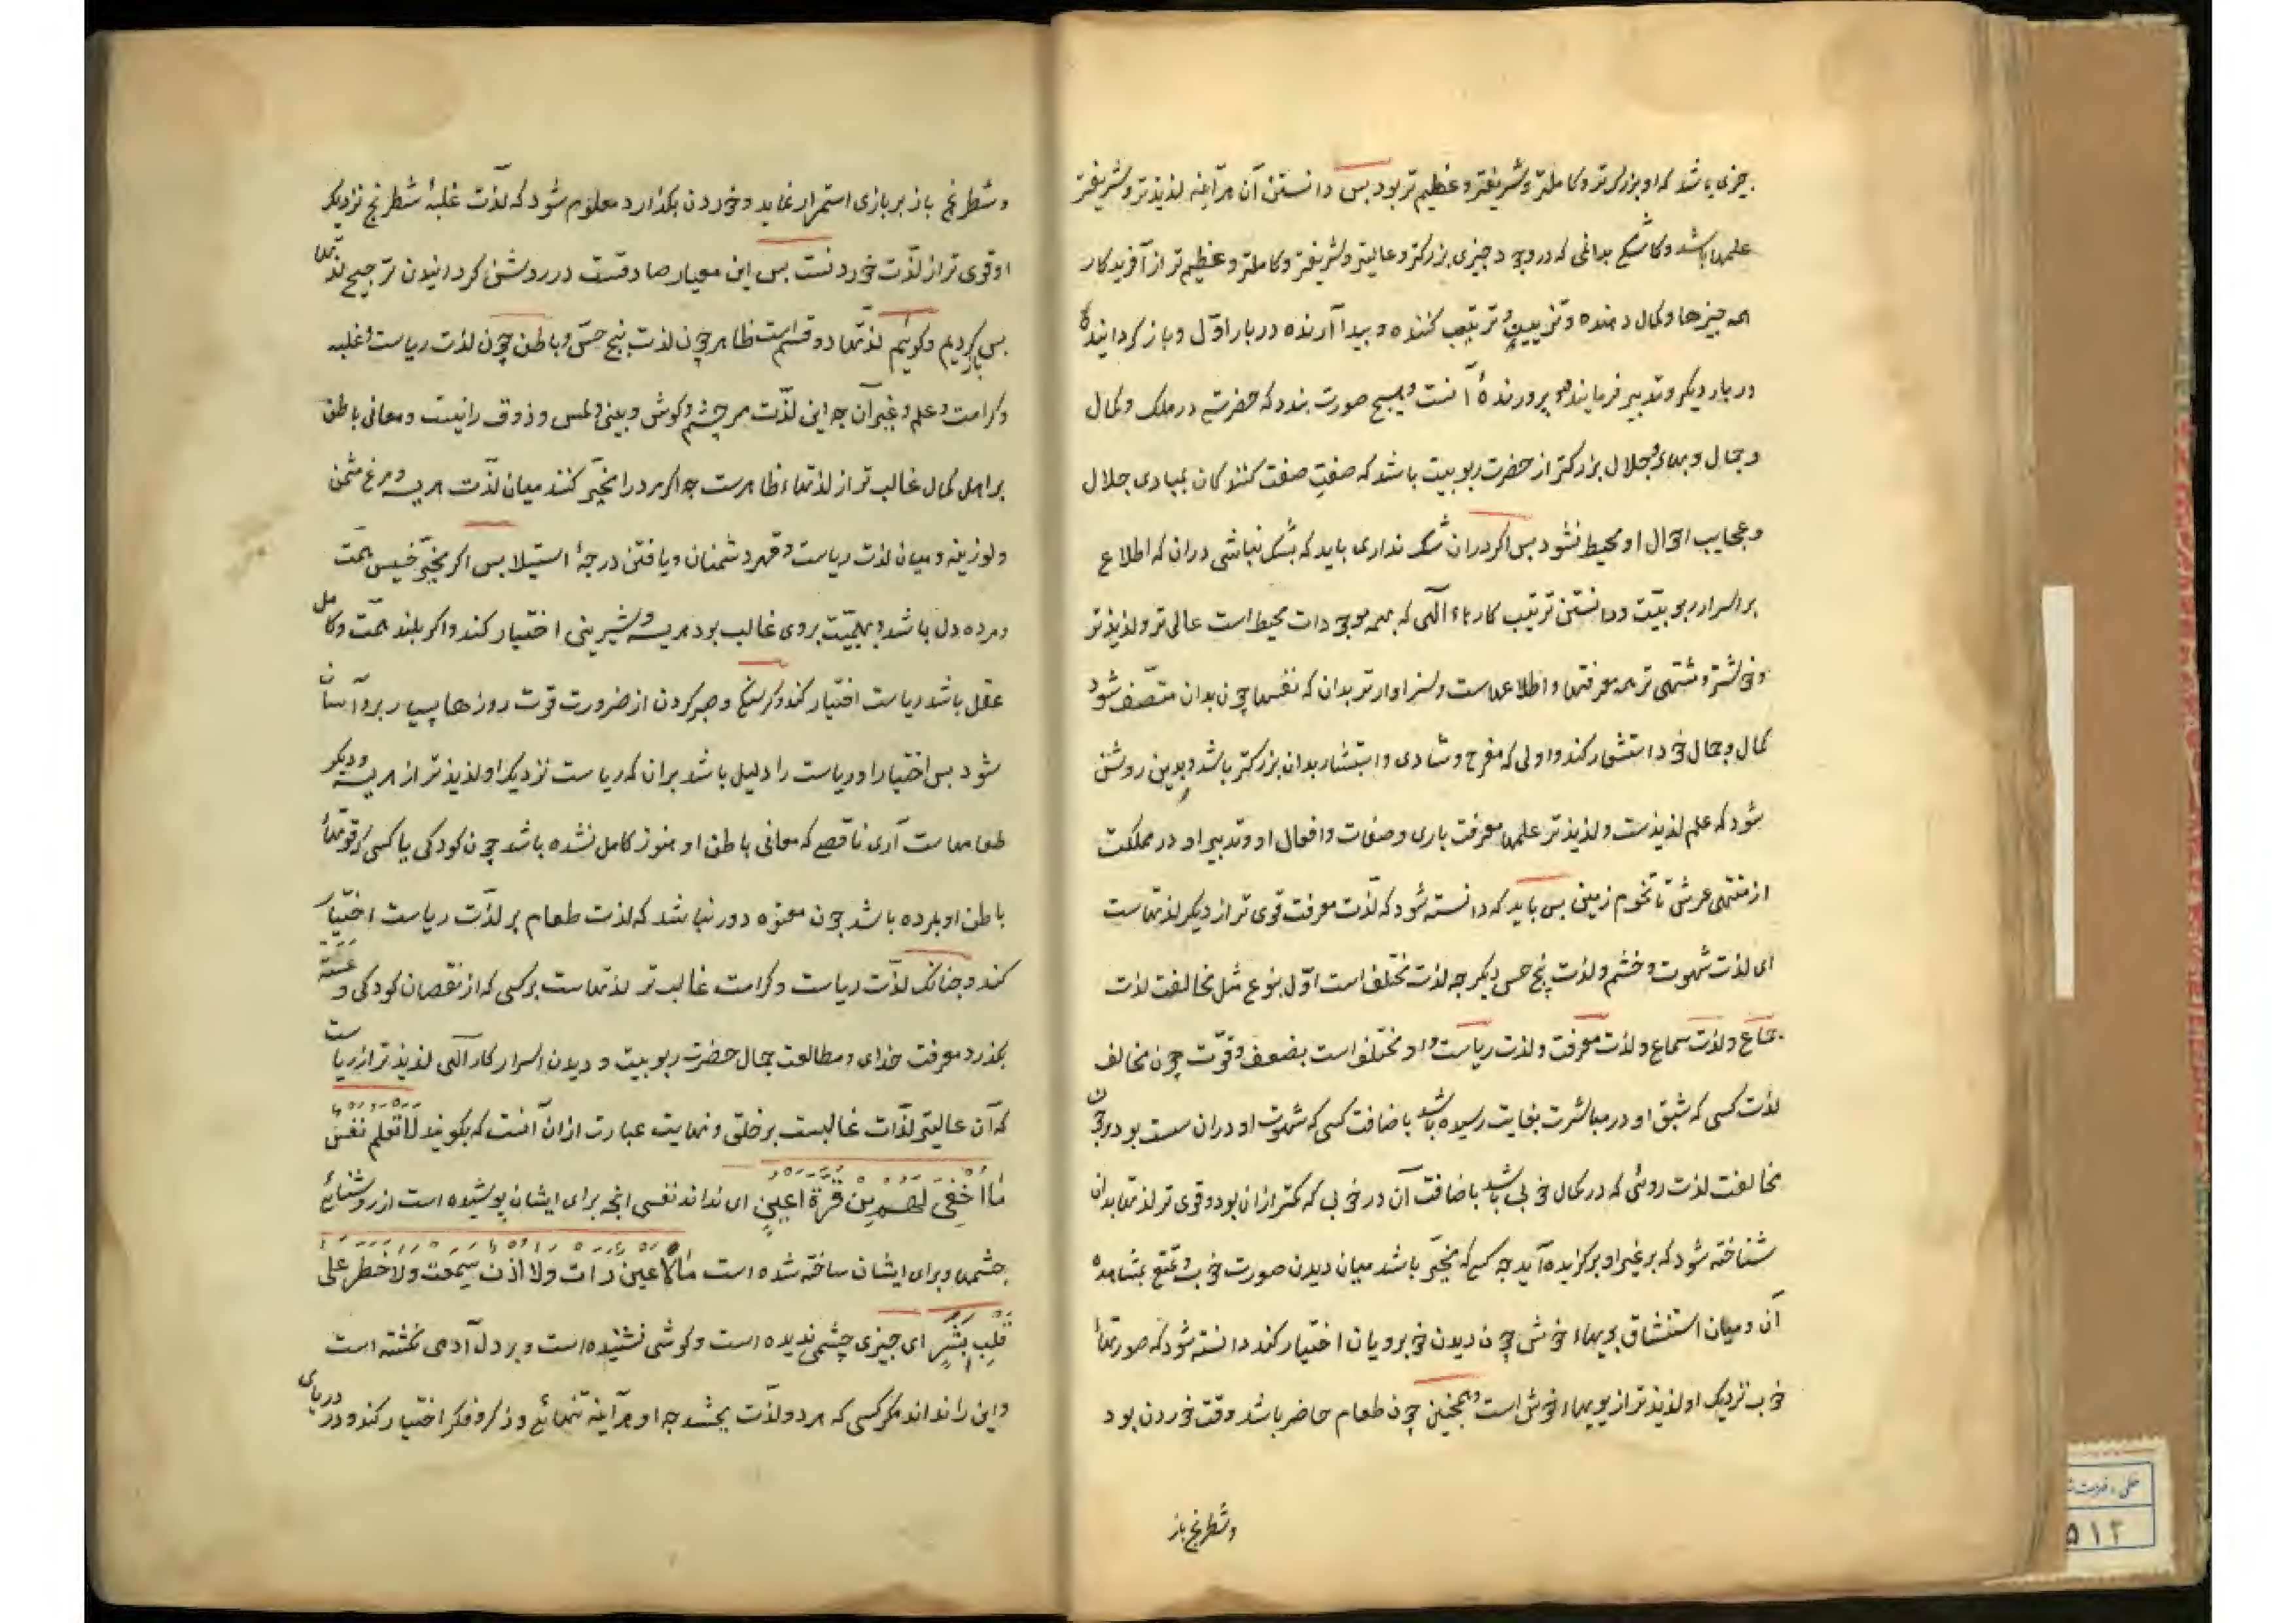 چیزی باشد که او بزرگتر و کاملتر و شریفتر و عظیم تر بود بس دانستن آن هرآینه لذیذتر و شریفتر
علمها باشد و کاشکی بدانمی که در وجود چیزی بزرکتر و عالیتر و شریفتر و کاملتر و عظیم تر از آفریدکار
همه چیزها و کمال دهنده و تزیین و ترتیب کننده و پیدا آرنده در بار اوّل و باز کردانیده
در بار دیکر و تدبیر فرماینده و پرورنده آنست و هیچ صورت بندد که حضرتی در ملک و کمال
و جمال و بهاء و جلال بزرکتر از حضرت ربوبیت باشد که صفتِ صفت کنندکان بمبادی جلال
و عجایب احوال او محیط نشود بس اکر دران شک نداری باید که بشک نباشی دران که اطلاع
بر اسرار ربوبیّت و دانستن ترتیب کارهاء الهی که بهمه موجودات محیط است عالی تر و لذیذتر
و خوشتر و مشتهی تر همه معرفتها و اطلاعهاست و سزاوارتر بدان که نفسها چون بدان متّصف شود
کمال و جمال خود استشعار کند و اولی که مفرح و شادی و استبشار بدان بزرکتر باشد و بدین روشن
شود که علم لذیذست و لذیذتر علمها معرفت باری و صفات و افعال او و تدبیر او در مملکت
از منتهی عرش تا تخوم زمین بس باید که دانسته شود که لذّت معرفت قوی تر از دیکر لذتهاست
ای لذت شهوت و خشم و لذت پنج حس دیکر جه لذت مختلف است اوّل بنوع مثل مخالفت لذت
جماع و لذت سماع و لذت معرفت و لذت ریاست و او مختلف است بضعف و قوّت چون مخالف
لذت کسی که شبق او در مباشرت بغایت رسیده باشد باضافت کسی که شهوت او دران سست بود و چون
مخالفت لذت روئی که در کمال خوبی باشد باضافت آن در خوبی که کمتر ازان بود و قوی تر لذتها بدان
شناخته شود که بر غیر او برکزیده آید جه کسی که مخیّر باشد میان دیدن صورت خوب و تمتع بمشاهده
آن و میان استنشاق بویهاء خوش چون دیدن خوبرویان اختیار کند دانسته شود که صورتهاء
خوب نزدیک او لذیذتر از بویهاء خوش است و همچنین چون طعام حاضر باشد وقت خوردن بود
و شطرنج باز
و شطرنج باز بر بازی استمرار نماید و خوردن بکذارد معلوم شود که لذّت غلبهٔ شطرنج نزدیک
او قوی تر از لذّت خوردنست بس این معیار صادقست در روشن کردانیدن ترجیح لذتها
بس باز کردیم و کوئیم لذتها دو قسم است ظاهر چون لذت پنج حسّ و باطن چون لذت ریاست و غلبه
و کرامت و علم و غیر آن جه این لذّت مر چشم و کوش و بینی و لمس و ذوق را نیست و معانی باطن
بر اهل کمال غالب تر از لذتهاء ظاهرست جه اکر مرد را مخیّر کنند میان لذّت هریسه و مرغ مثمن
و لوزینه و میان لذت ریاست و قهر دشمنان و یافتن درجهٔ استیلا بس اکر مخیّر خسیس همّت
و مرده دل باشد و بهیمیّت بر وی غالب بود هریسه و شیرینی اختیار کند و اکر بلند همّت و کامل
عقل باشد ریاست اختیار کند و کرسنکی و صبر کردن از ضرورت قوت روزها بسیار برو آسان
شود بس اختیار او ریاست را دلیل باشد بران که ریاست نزدیک او لذیذتر از هریسه و دیکر
طعامهاست آری ناقصی که معانی باطن او هنوز کامل نشده باشد چون کودکی یا کسی که قوتهاء
باطن او بمرده باشد چون معتوه دور نباشد که لذت طعام بر لذّت ریاست اختیار
کند و چنانک لذّت ریاست و کرامت غالب تر لذتهاست بر کسی که از نقصان کودکی و عته
بکذرد معرفت خدای و مطالعت جمال حضرت ربوبیت و دیدن اسرار کار الهی لذیذتر از ریاست
که آن عالیتر لذّات غالبست بر خلق و نهایت عبارت ازان آنست که بکویند لَا تَعْلَم نَفسٌ
مَا اُخْفِیَ لَهُم مِن قُرَّةِ اَعیُنٍ ای نداند نفسی انچه برای ایشان پوشیده است از روشنائی
چشمها و برای ایشان ساخته شده است مَا لَا عَینٌ رَات وَلا اُذُن سَمِعَت وَلا خَطَر عَلی
قَلبِ بَشَرٍ ای چیزی چشمی ندیده است و کوشی نشنیده است و بر دل آدمی نکشته است
و این را نداند مکر کسی که هر دو لذّت بچشد جه او هرآینه تنهائی و ذکر و فکر اختیار کند و در دریای
۵۱۲